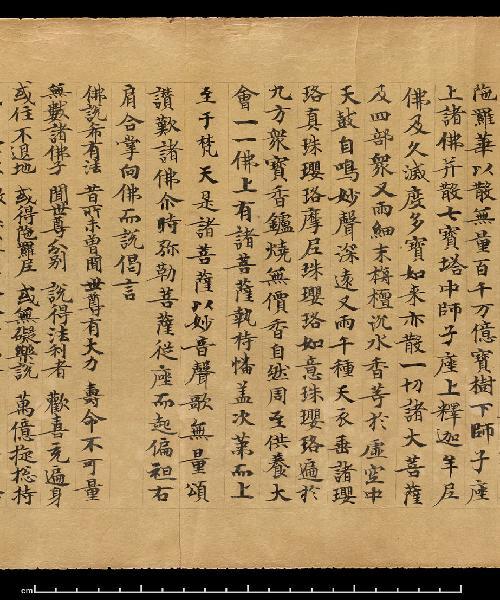 陁羅華以散無量百千万億寶樹下師子座
上諸佛并散七寶塔中師子座上釋迦牟尼
佛及久滅度多寶如来亦散一切諸大菩薩
及四部衆又雨細末栴檀沉水香等於虛空中
天鼓自鳴妙聲深遠又雨千種天衣垂諸瓔
珞真珠瓔珞摩尼珠瓔珞如意珠瓔珞遍於
九方衆寶香鑪燒無價香自然周至供養大
會一一佛上有諸菩薩執持幡盖次第而上
至于梵天是諸菩薩以妙音聲歌無量頌
讃歎諸佛尒時弥勒菩薩從座而起偏袒右
肩合掌向佛而說偈言
佛說希有法 昔所未曾聞 世尊有大力 壽命不可量
無數諸佛子 聞世尊分別 說得法利者 歡喜充遍身
或住不退地 或得陁羅尼 或無礙樂說 萬億旋揔持
cm